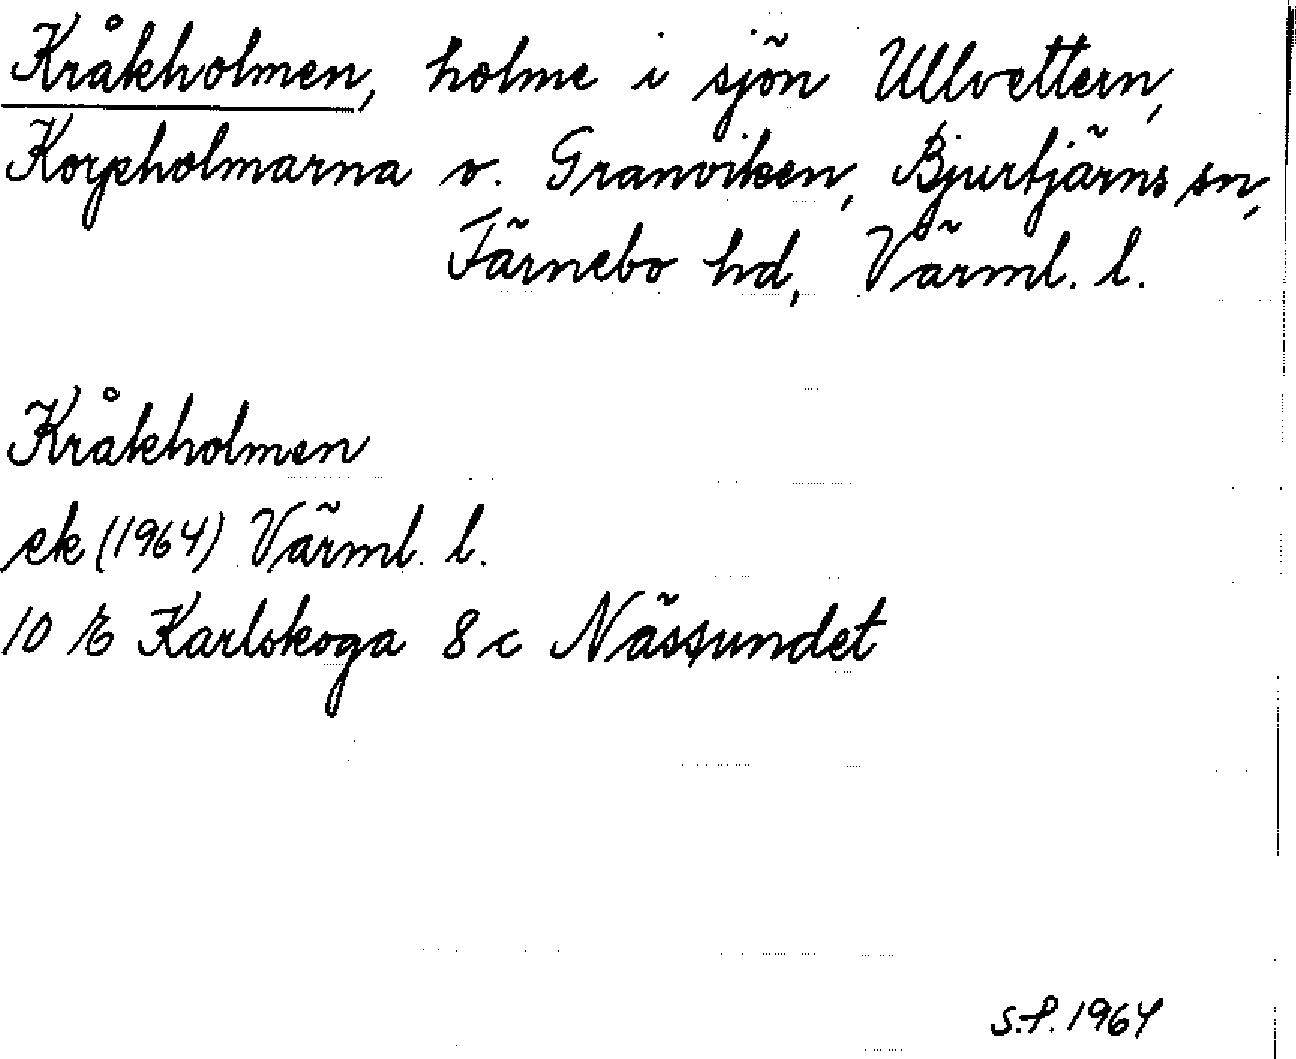 Kråkholmen, holme i sjön Ullvettern,
Korpholmarna v. Granviken, Bjurtjärns sn,
Färnebo hd, Värml. l.
Kråkholmen
ek (1964) Värml. l.
10 E Karlskoga 8 c Nässundet
S.P. 1964